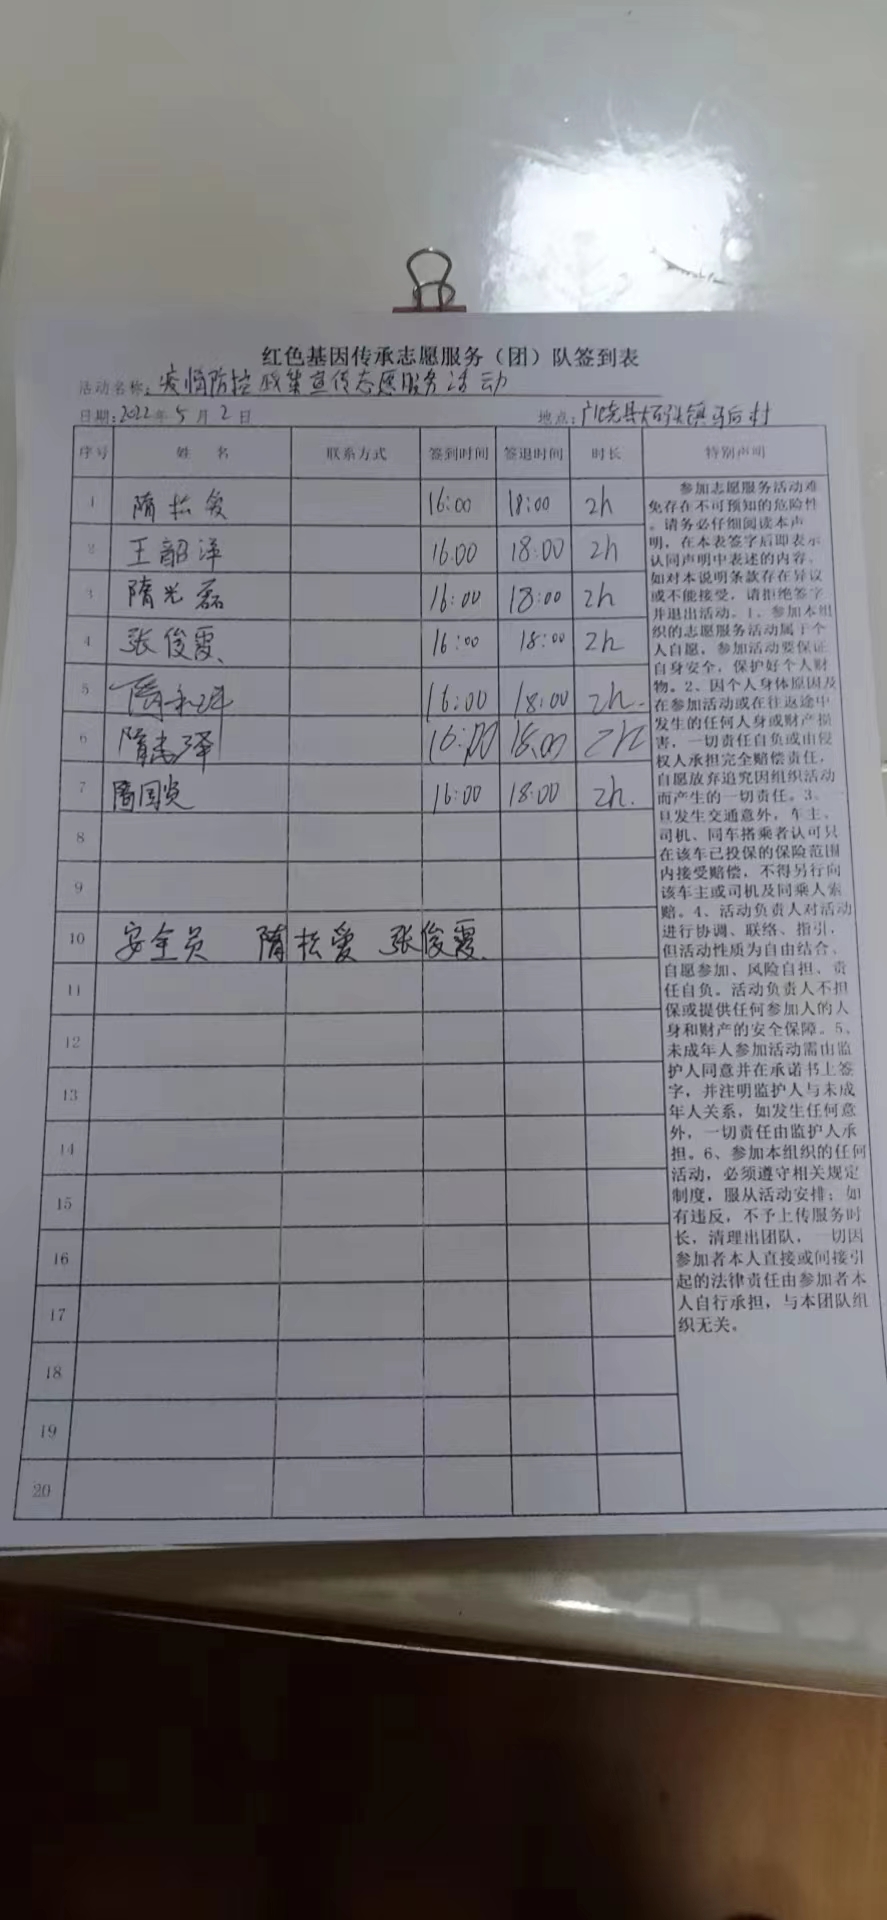 红色基因传承志愿服务（团）队签到表
活动名称：疫情防控政策宣传志愿服务活动
日期：2022年5月2日 地点：广饶县大码头镇 后村
序号 姓 名 联系方式 签到时间 签退时间 时长 特别声明
1 隋 爱 16:00 18:00 2h
2 王韶泽 16:00 18:00 2h
3 隋光磊 16:00 18:00 2h
4 张俊霞 16:00 18:00 2h
5 隋 16:00 18:00 2h.
6 隋 泽 16:00 18:00 2h
7 隋国 16:00 18:00 2h.
8
9
10 安全员 隋 爱 张俊霞
11
12
13
14
15
16
17
18
19
20
参加志愿服务活动难
免存在不可预知的危险性
。请务必仔细阅读本声
明，在本表签字后即表示
认同声明中表述的内容。
如对本说明条款存在异议
或不能接受，请拒绝签字
并退出活动。1、参加本组
织的志愿服务活动属于个
人自愿，参加活动要保证
自身安全，保护好个人财
物。2、因个人身体原因及
在参加活动或在往返途中
发生的任何人身或财产损
害，一切责任自负或由侵
权人承担完全赔偿责任，
自愿放弃追究因组织活动
而产生的一切责任。3、一
旦发生交通意外，车主、
司机、同车搭乘者认可只
在该车已投保的保险范围
内接受赔偿，不得另行向
该车主或司机及同乘人索
赔。4、活动负责人对活动
进行协调、联络、指引，
但活动性质为自由结合、
自愿参加、风险自担、责
任自负。活动负责人不担
保或提供任何参加人的人
身和财产的安全保障。5、
未成年人参加活动需由监
护人同意并在承诺书上签
字，并注明监护人与未成
年人关系，如发生任何意
外，一切责任由监护人承
担。6、参加本组织的任何
活动，必须遵守相关规定
制度，服从活动安排；如
有违反，不予上传服务时
长，清理出团队，一切因
参加者本人直接或间接引
起的法律责任由参加者本
人自行承担，与本团队组
织无关。